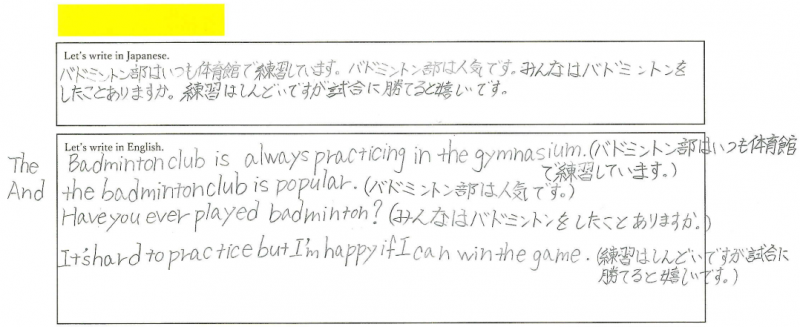 Let's write in Japanese.
バドミントン部はいつも体育館で練習しています。バドミントン部は人気です。みんなはバドミントンを
したことありますか。練習はしんどいですが試合に勝てると嬉しいです。
Let's write in English.
The Badminton club is always practicing in the gymnasium. (バドミントン部はいつも体育館
で練習しています。)
And the badminton club is popular. (バドミントン部は人気です。)
Have you ever played badminton? (みんなはバドミントンをしたことありますか。)
It's hard to practice but I'm happy if I can win the game. (練習はしんどいですが試合に
勝てると嬉しいです。)